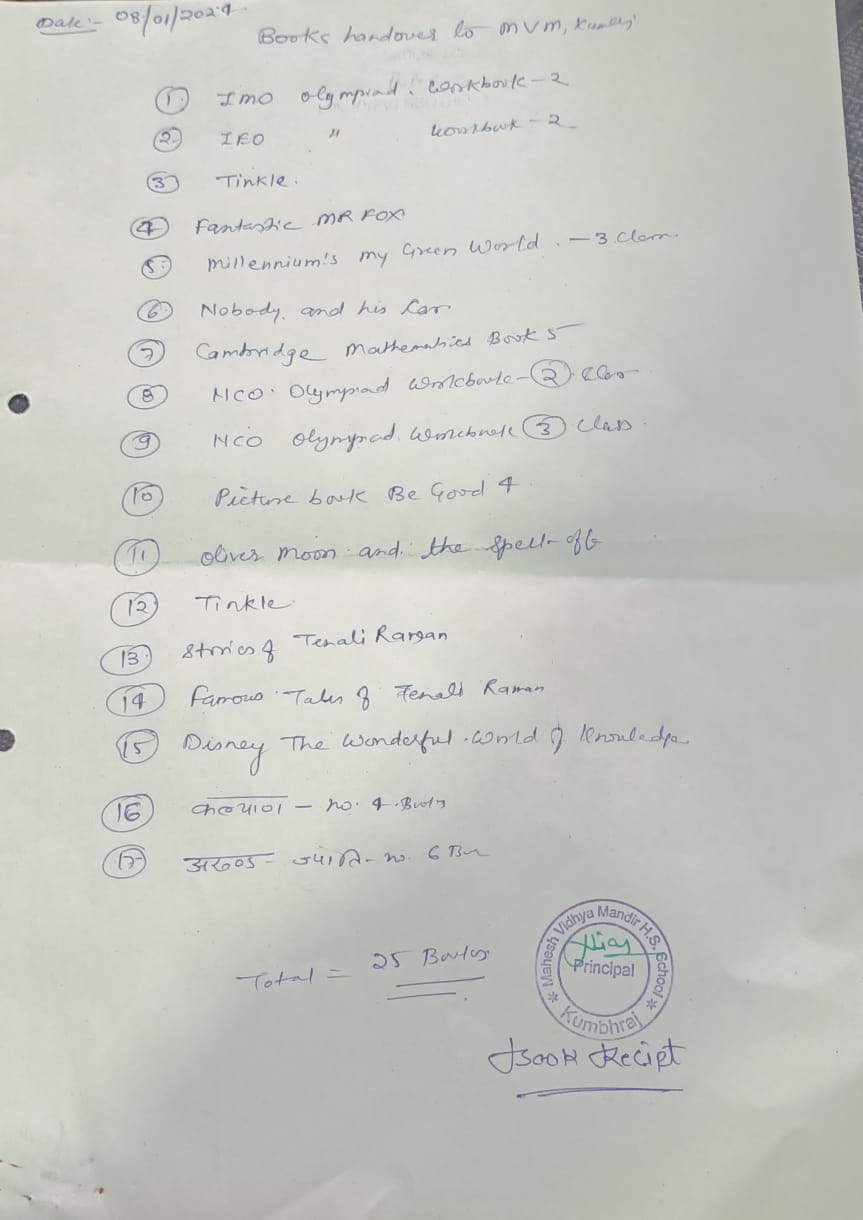 Date:- 08/01/2024
Books handover to MVM, Kumbhraj
1. IMO Olympiad. Workbook - 2
2. IEO " Workbook - 2
3 Tinkle.
4 Fantastic MR FOX
5. Millennium's my Green World. - 3 Class.
6. Nobody, and his Car
7 Cambridge Mathematics Book 5
8 NCO. Olympiad Workbook - 2 Class
9 NCO Olympiad Workbook 3 Class.
10 Picture book Be Good 4
11 Oliver Moon and the Spell-off
12 Tinkle
13. Stories of Tenali Raman
14 Famous Tales of Tenali Raman
15 Disney The Wonderful World of Knowledge
16 कल्याण - no. 4 Books
17 अखण्ड ज्योति - no. 6 Bo
Total = 25 Books
Mahesh Vidhya Mandir H.S. School
Principal
Kumbhraj
Book Recipt